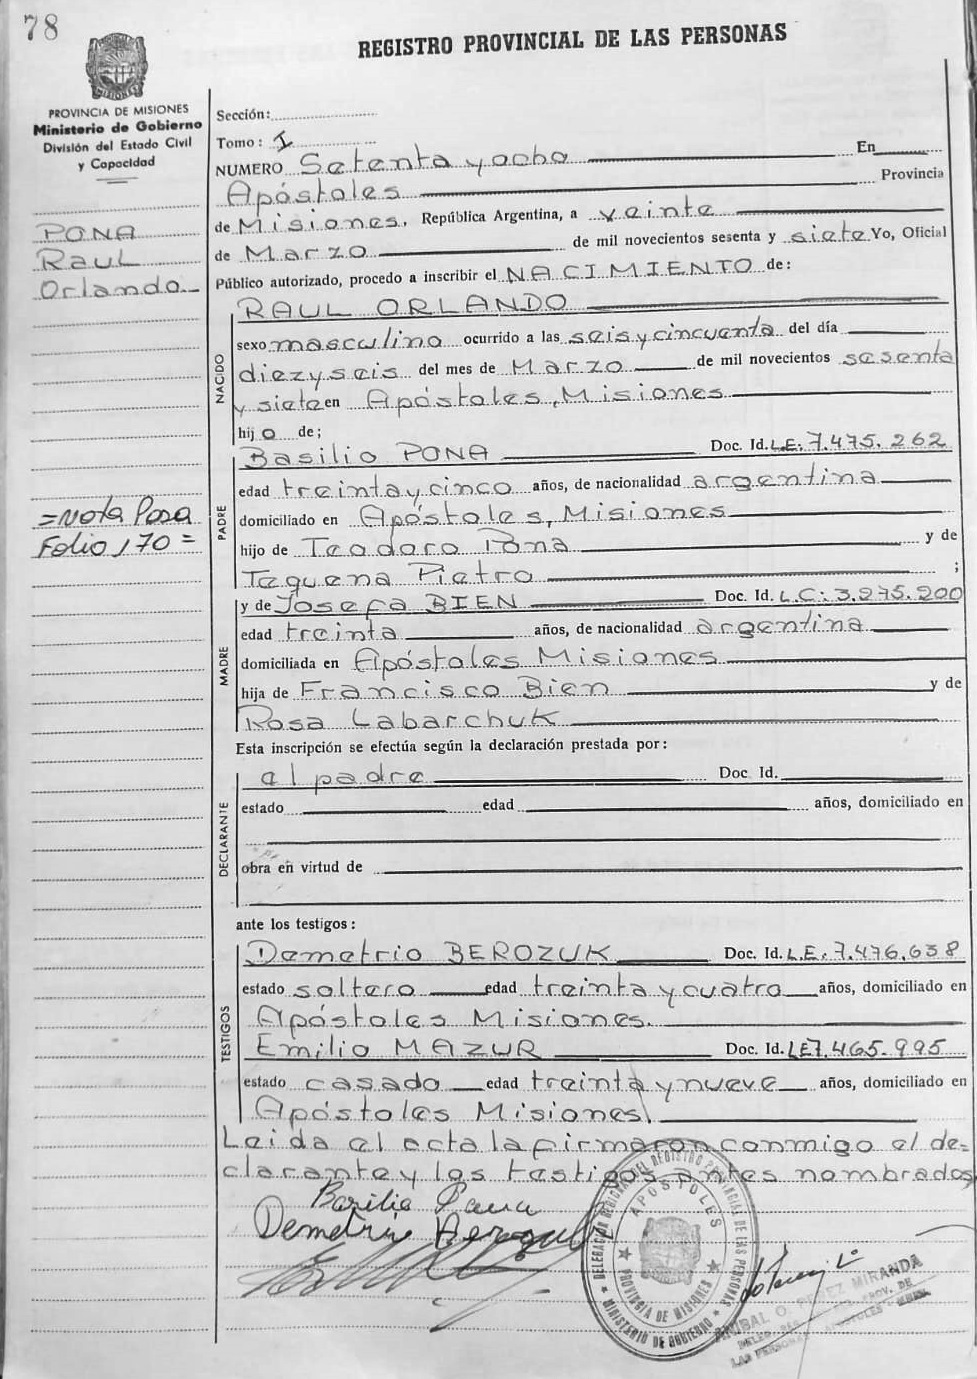 78
REGISTRO PROVINCIAL DE LAS PERSONAS
PROVINCIA DE MISIONES
Ministerio de Gobierno
División del Estado Civil
y Capacidad
PONA
RAUL
Orlando
=Nota Pasa
Folio 170=
Sección:
Tomo: I
NUMERO Setenta y ocho En
Apóstoles Provincia
de Misiones, República Argentina, a veinte
de Marzo de mil novecientos sesenta y siete Yo, Oficial
Público autorizado, procedo a inscribir el NACIMIENTO de:
NACIDO
RAUL ORLANDO
sexo masculino ocurrido a las seis y cincuenta del día
diez y seis del mes de Marzo de mil novecientos sesenta
y siete en Apóstoles, Misiones
hijo de;
PADRE
Basilio PONA Doc. Id. L.E. 7.475.262
edad treinta y cinco años, de nacionalidad argentina
domiciliado en Apóstoles, Misiones
hijo de Teodoro Pona y de
Taquena Pietro ;
MADRE
y de Josefa BIEN Doc. Id. L.C: 3.275.200
edad treinta años, de nacionalidad argentina
domiciliada en Apóstoles Misiones
hija de Francisco Bien y de
Rosa Labarchuk
Esta inscripción se efectúa según la declaración prestada por:
DECLARANTE
el padre Doc Id.
estado edad años, domiciliado en
obra en virtud de
ante los testigos:
TESTIGOS
Demetrio BEROZUK Doc. Id. L.E. 7.476.638
estado soltero edad treinta y cuatro años, domiciliado en
Apóstoles Misiones.
Emilio MAZUR Doc. Id. LE 7.465.995
estado casado edad treinta y nueve años, domiciliado en
Apóstoles Misiones.
Leida el acta la firmaron conmigo el de=
clarante y los testigos antes nombrados
Basilio Pona
Demetrio
DELEGACION REGIONAL DEL REGISTRO PROVINCIAL DE LAS PERSONAS
APOSTOLES
PROVINCIA DE MISIONES
MINISTERIO DE GOBIERNO
ANIBAL O. PEREZ MIRANDA
LAS PERSONAS APOSTOLES